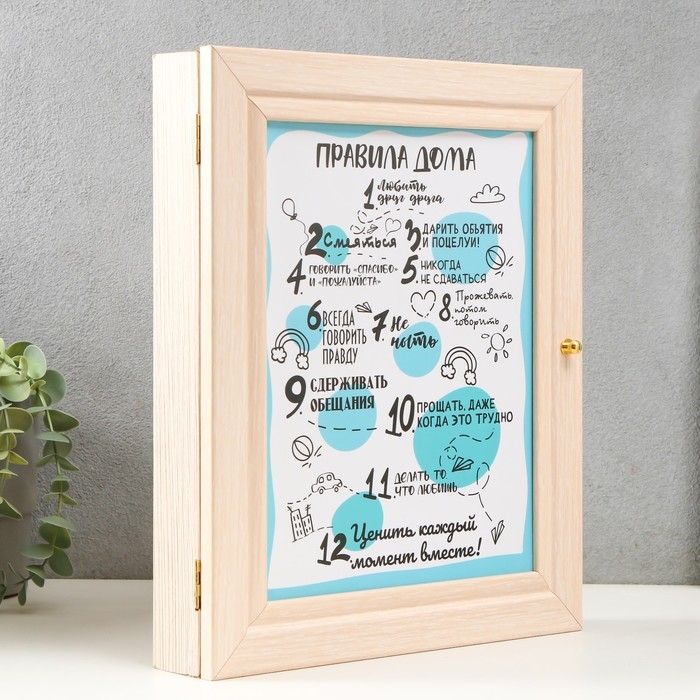 ПРАВИЛА ДОМА
1. Любить
друг друга
2 Смеяться
3. ДАРИТЬ ОБЪЯТИЯ
И ПОЦЕЛУИ!
4 ГОВОРИТЬ «СПАСИБО»
И «ПОЖАЛУЙСТА»
5. НИКОГДА
НЕ СДАВАТЬСЯ
6. ВСЕГДА
ГОВОРИТЬ
ПРАВДУ
7. Не
ныть
8. Прожевать,
потом
говорить
9 СДЕРЖИВАТЬ
ОБЕЩАНИЯ
10. ПРОЩАТЬ, ДАЖЕ
КОГДА ЭТО ТРУДНО
11. ДЕЛАТЬ ТО,
ЧТО ЛЮБИШЬ
12. Ценить каждый
момент вместе!